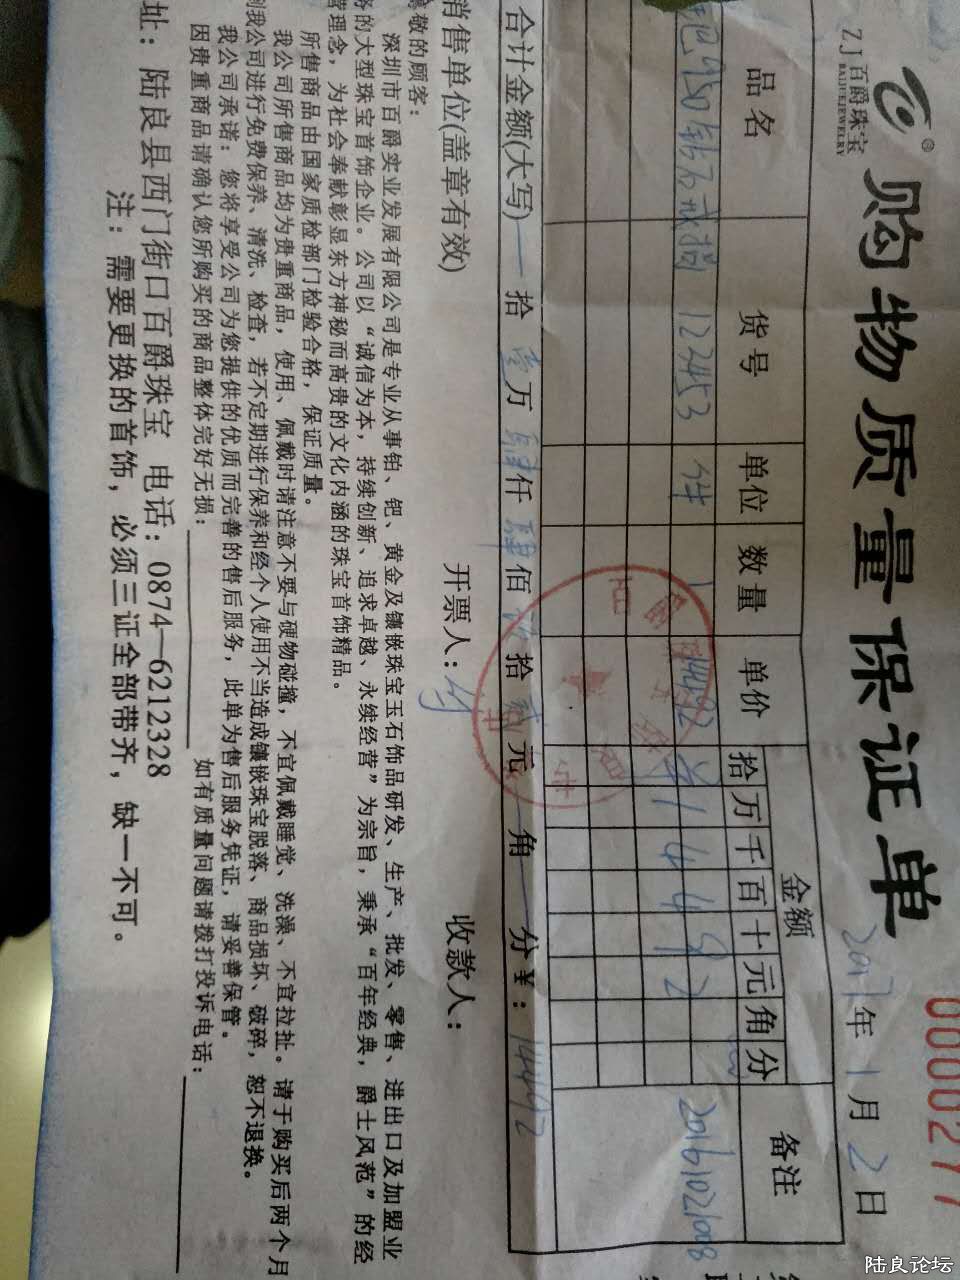 ZJ百爵珠宝
BAIJUEJEWELRY
®
购物质量保证单
0000277
2017年1月2日
品名 货号 单位 数量 单价 金额 备注
拾万千百十元角分
钯950钻石戒指 123453 件 1 14492 ¥14492 20161021008
合计金额(大写) 拾壹万肆仟肆佰玖拾贰元 角 分¥:14492
销售单位(盖章有效) 开票人: 收款人:
敬的顾客:
深圳市百爵实业发展有限公司是专业从事铂、钯、黄金及镶嵌珠宝玉石饰品研发、生产、批发、零售、进出口及加盟业
务的大型珠宝首饰企业。公司以“诚信为本,持续创新、追求卓越、永续经营”为宗旨,秉承“百年经典,爵士风范”的经
管理念,为社会奉献彰显东方神秘而高贵的文化内涵的珠宝首饰精品。
所售商品由国家质检部门检验合格,保证质量。
我公司所售商品均为贵重商品,使用、佩戴时请注意不要与硬物碰撞,不宜佩戴睡觉、洗澡、不宜拉扯。请于购买后两个月
到我公司进行免费保养、清洗、检查,若不定期进行保养和经个人使用不当造成镶嵌珠宝脱落、商品损坏、破碎,恕不退换。
我公司承诺:您将享受公司为您提供的优质而完善的售后服务,此单为售后服务凭证,请妥善保管。
因贵重商品请确认您所购买的商品整体完好无损: 如有质量问题请拨打投诉电话:
址:陆良县西门街口百爵珠宝 电话:0874—6212328
注:需要更换的首饰,必须三证全部带齐,缺一不可。
陆良论坛